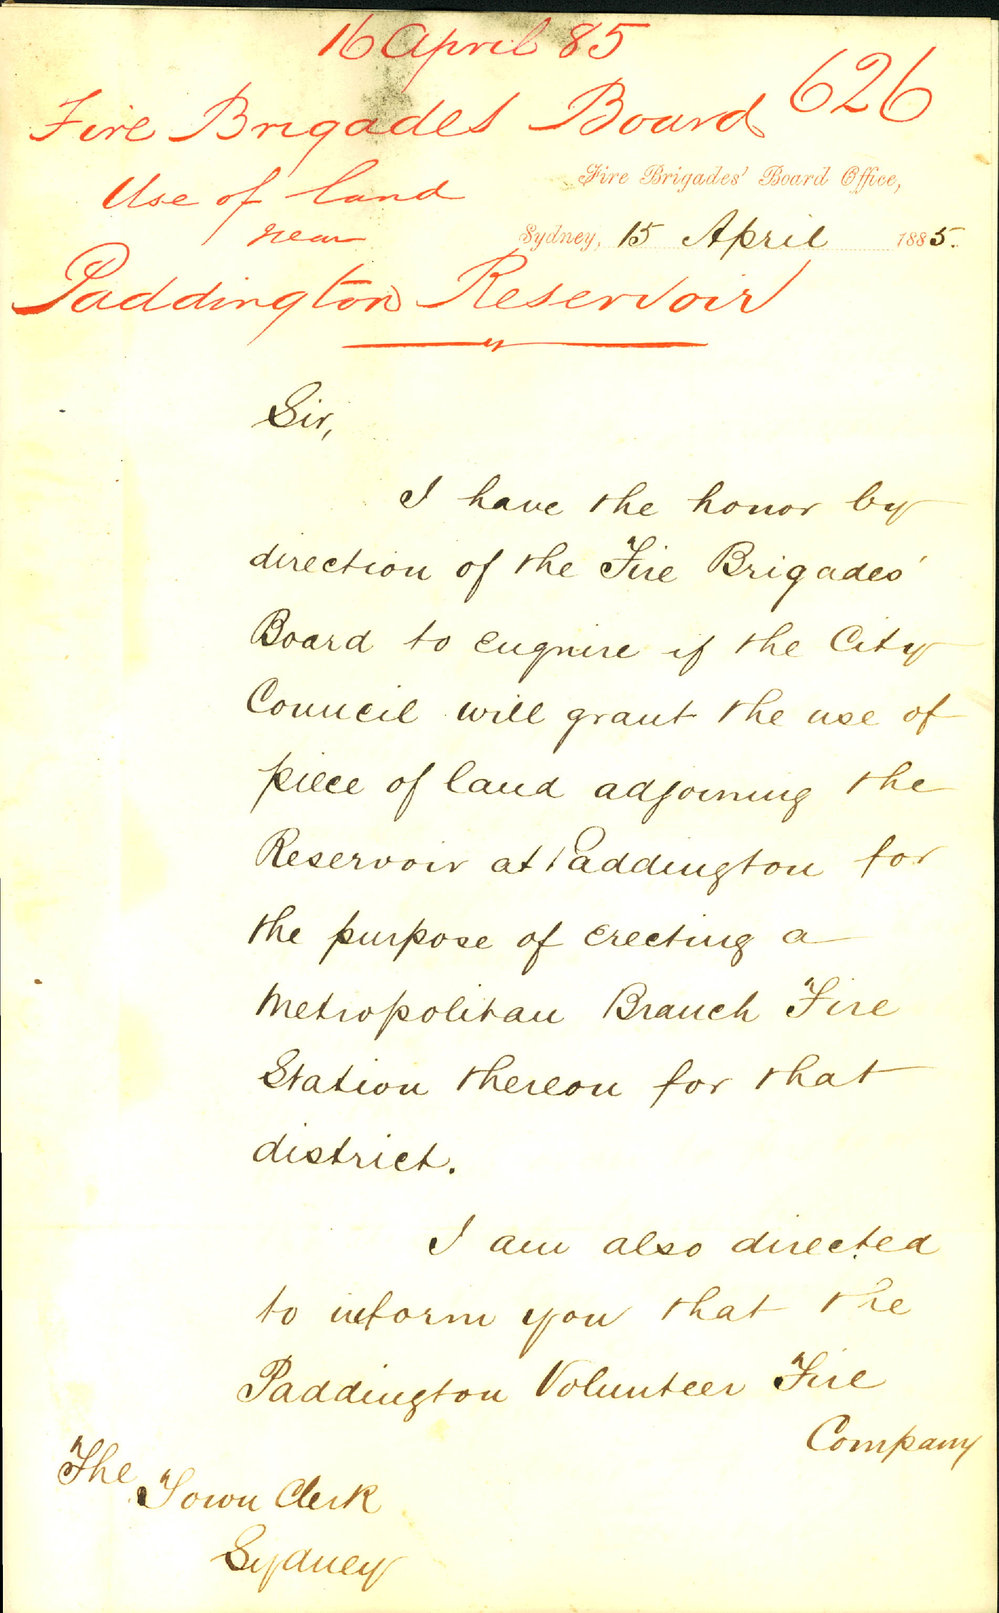 16 April 85
626
Fire Brigades Board
Use of land
near
Paddington Reservoir
Fire Brigades' Board Office,
Sydney, 15 April 1885.
Sir,
I have the honor by
direction of the Fire Brigades'
Board to enquire if the City
Council will grant the use of
piece of land adjoining the
Reservoir at Paddington for
the purpose of erecting a
Metropolitan Branch Fire
Station thereon for that
district.
I am also directed
to inform you that the
Paddington Volunteer Fire
Company
The
Town Clerk
Sydney